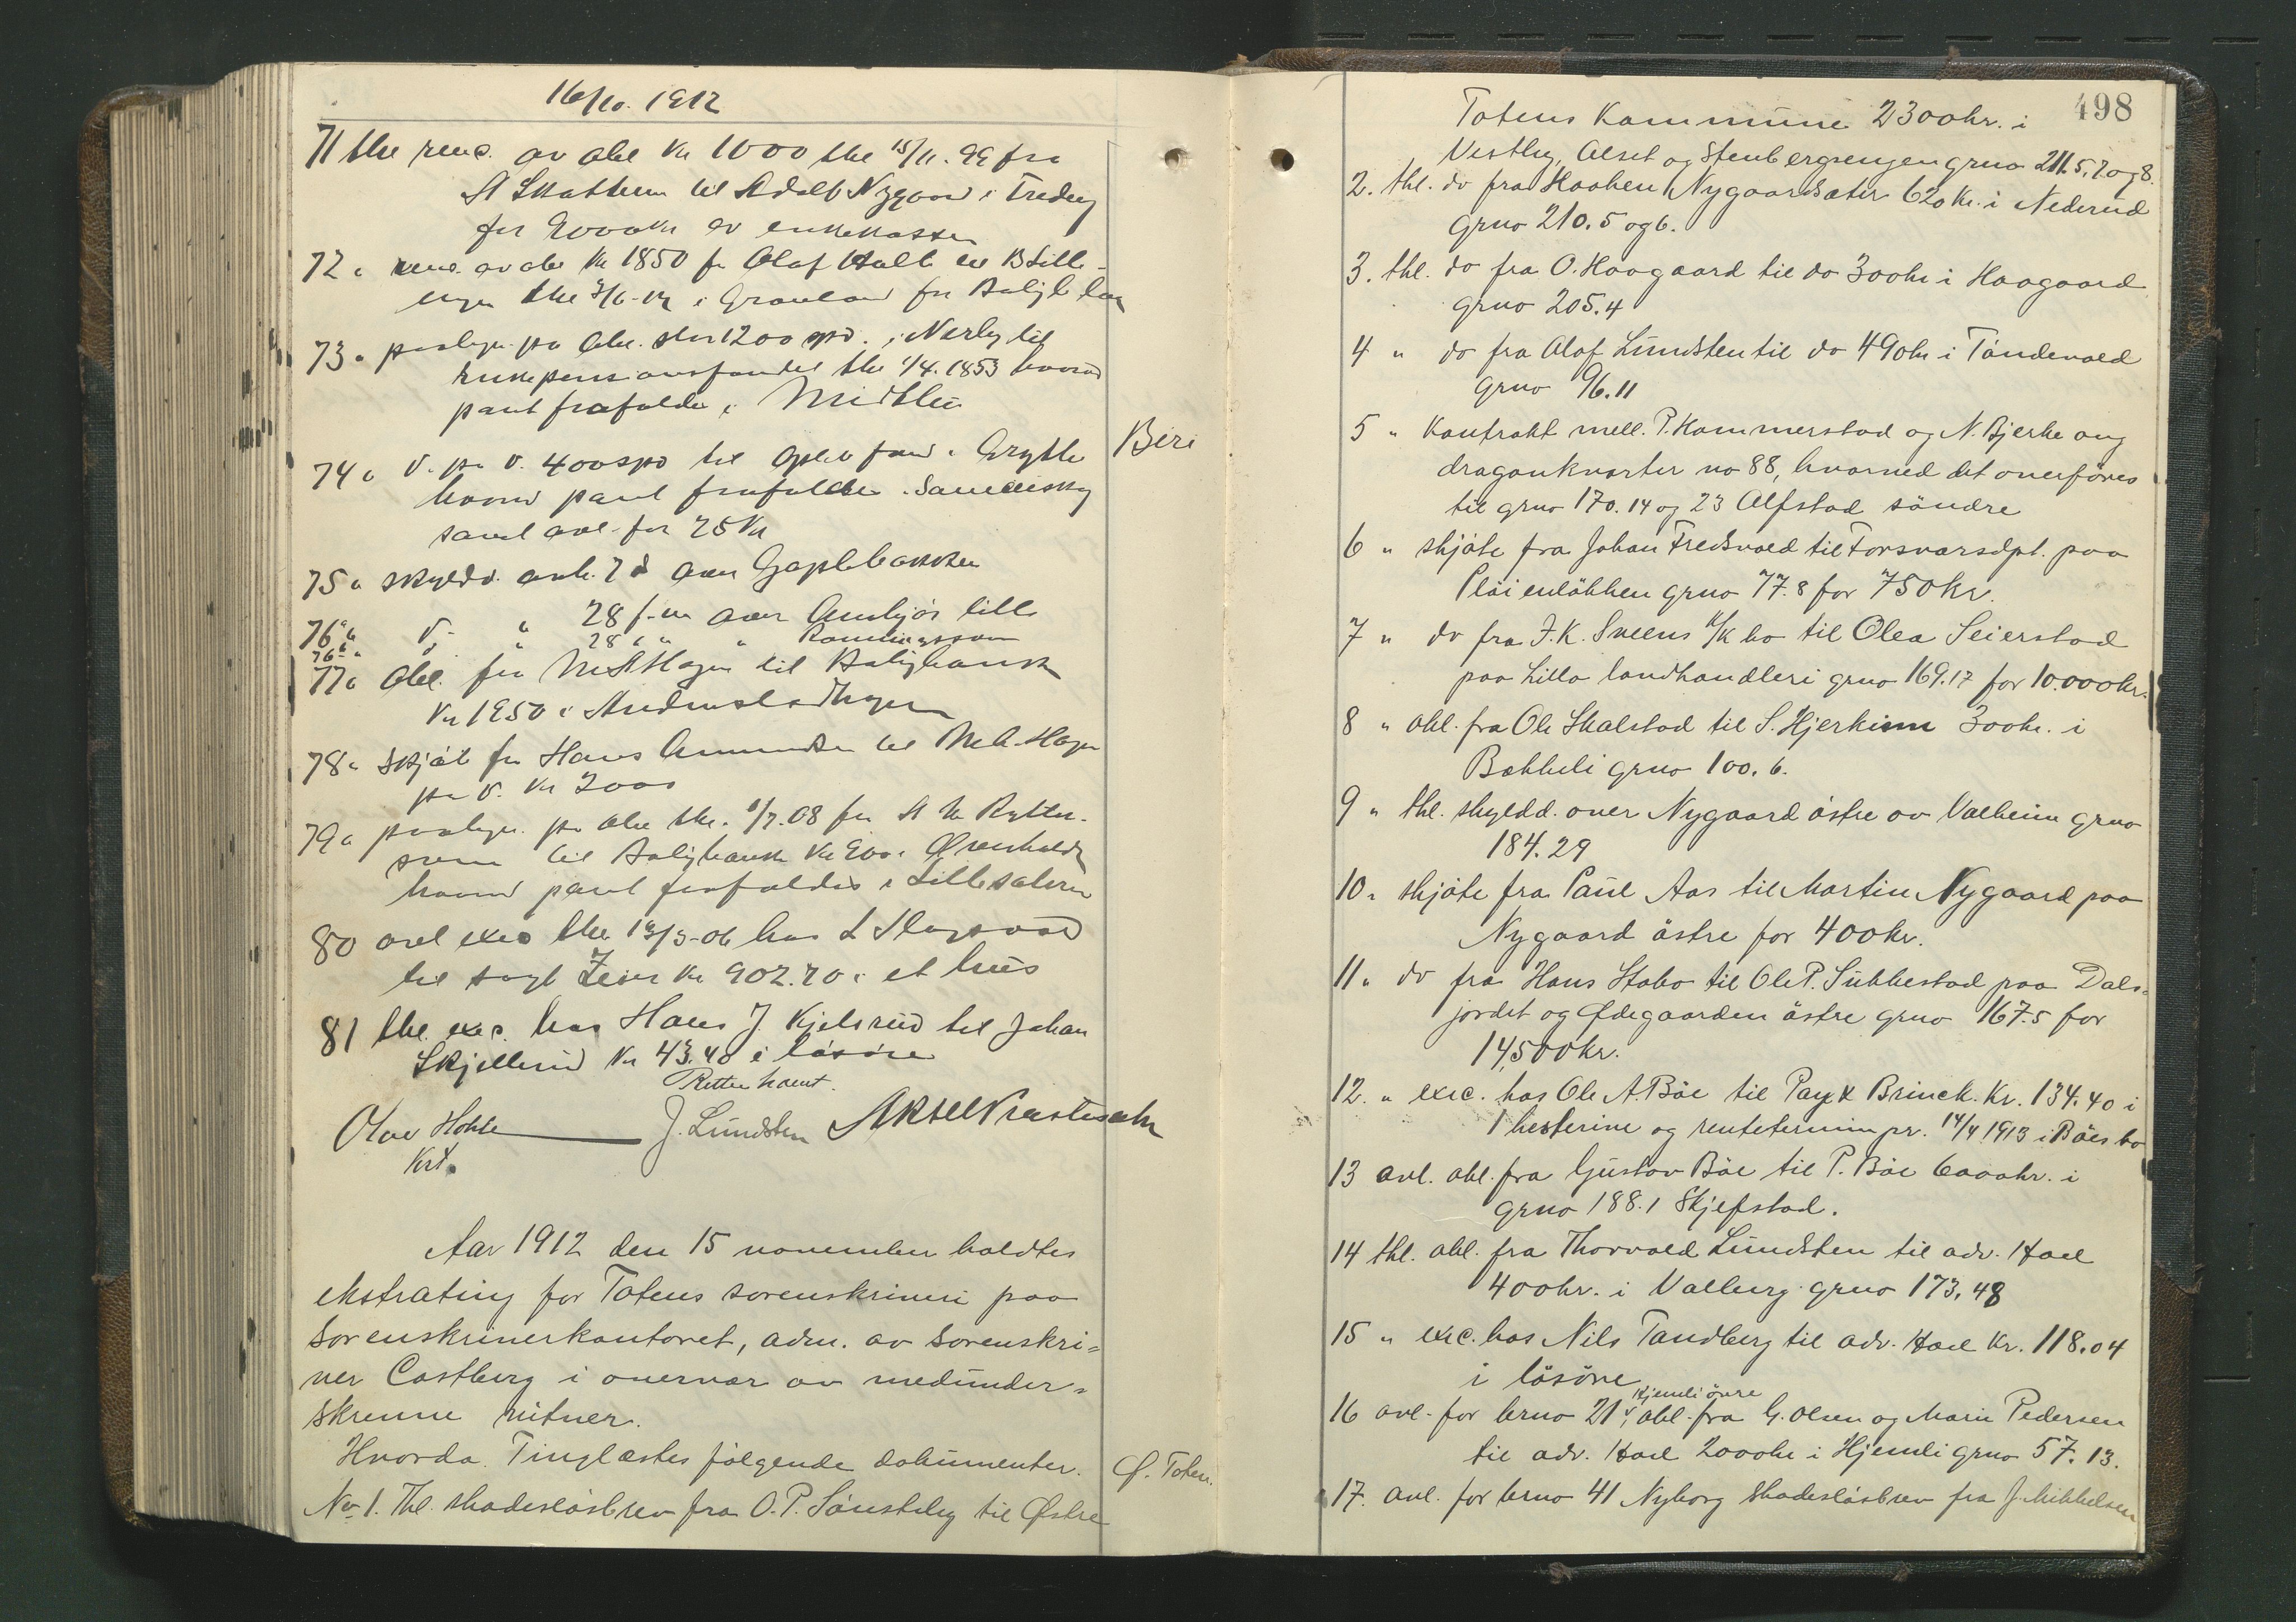 16/10. 1912
71 thl renc. av obl Kr 1000 thl 15/11. 99 fra
A Skattum til Adolf Nygaard i Tredeng
for 9000 Kr av enkekassen
72 " renc. av obl Kr 1850 fr Olaf Hall til B Lille-
engen thl i Grønland fra
73 " paategn. pa obl. stor 1200 spd. i Nerby til
enkepensionsfondet thl 1/4. 1853 hvorved
pant frafaldes i Midtlien
74 " d. pa d. 400 spd til oplo fond i Grytte
hvorved pant frafaldes i
samt avl. for 25 Kr
Biri
75 " skyldd. avh. 7 d over Gaplebakken
76a " d. " 28 f.m over Amskjør lille
76b " d. " 28 " " " Rønningsveen
77 " Obl. fra M A Hagen til Boligbanken
Kr 1950 i
78 " Skjøte fra Hans Amundsen til M A. Hagen
pa d. Kr 2000
79 " paategn. pa obl thl. 1/7. 08 fra A
til Boligbanken Kr 900 i
hvorved pant frafaldes i Lillesæteren
80 avl exec thl 13/3-06 hos L
til sagf Zeier Kr 902.70 i et hus
81 thl. exec. hos Hans J. Kjelsrud til Johan
Skjellerud Kr 43.40 i løsøre
Retten hævet.
Olav Hohle J. Lundsten Aksel
Krst.
Aar 1912 den 15 november holdtes
ekstrating for Totens sorenskriveri paa
Sorenskriverkontoret, adm. av Sorenskri-
ver Castberg i overvær av medunder-
skrevne vitner.
Hvorda Tinglæstes følgende dokumenter.
No 1. Thl. skadesløsbrev fra O. P. Sønsteby til Østre
Ø. Toten.
498
Totens Kommune 2300 kr. i
Vestby, Alset og Stenbergsengen grno 211.5, 7 og 8.
2. thl. do fra Haaken Nygaardsæter 620 Kr. i Nederud
grno 210.5 og 6.
3. thl. do fra O. Haagaard til do 300 kr i Haagaard
grno 205.4
4 " do fra Olaf Lundsten til do 490 kr i Tøndevold
grno 96.11
5 " Kontrakt mell. P. Hammerstad og N. Bjerke ang
dragonkvarter no 88, hvorved det overføres
til grno 170.14 og 23 Alfstad søndre
6 " skjøte fra Johan Fredsvold til Forsvarsdpt. paa
Pløienløkken grno 77.8 for 750 kr.
7 " do fra J. K. Sveens k/k bo til Olea Seierstad
paa Lilla landhandleri grno 169.17 for 10.000 kr.
8 " obl. fra Ole Skalstad til S. Hjerkinn 300 kr. i
Bækkeli grno 100.6.
9 " thl. skyldd. over Nygaard østre av Valheim grno
184.29
10 " skjøte fra Paul Aas til Martin Nygaard paa
Nygaard østre for 400 kr.
11 " do fra Hans Stabo til Ole P. Sukkestad paa Dals-
jordet og Ødegaarden østre grno 167.5 for
14,500 kr.
12. " exec. hos Ole A. Bøe til Pay & Brinck. Kr. 134.40 i
1 hesterive og rentetermin pr. 14/4 1913 i Bøes bo
13 avl. obl. fra Gustav Bøe til P. Bøe 6000 kr. i
grno 188.1 Skjefstad.
14 thl. obl. fra Thorvald Lundsten til adv. Hoel
400 kr. i Valberg grno 173.48
15 " exec. hos Nils Tandberg til adv. Hoel Kr. 118.04
i løsøre
Hjemli øvre
16 avl. for brno 21, obl. fra G. Olsen og Marie Pedersen
til adv. Hoel 2000 kr i Hjemli grno 57.13.
17. avl. for brno 41 Nyborg skadesløsbrev fra J. Mikkelsen